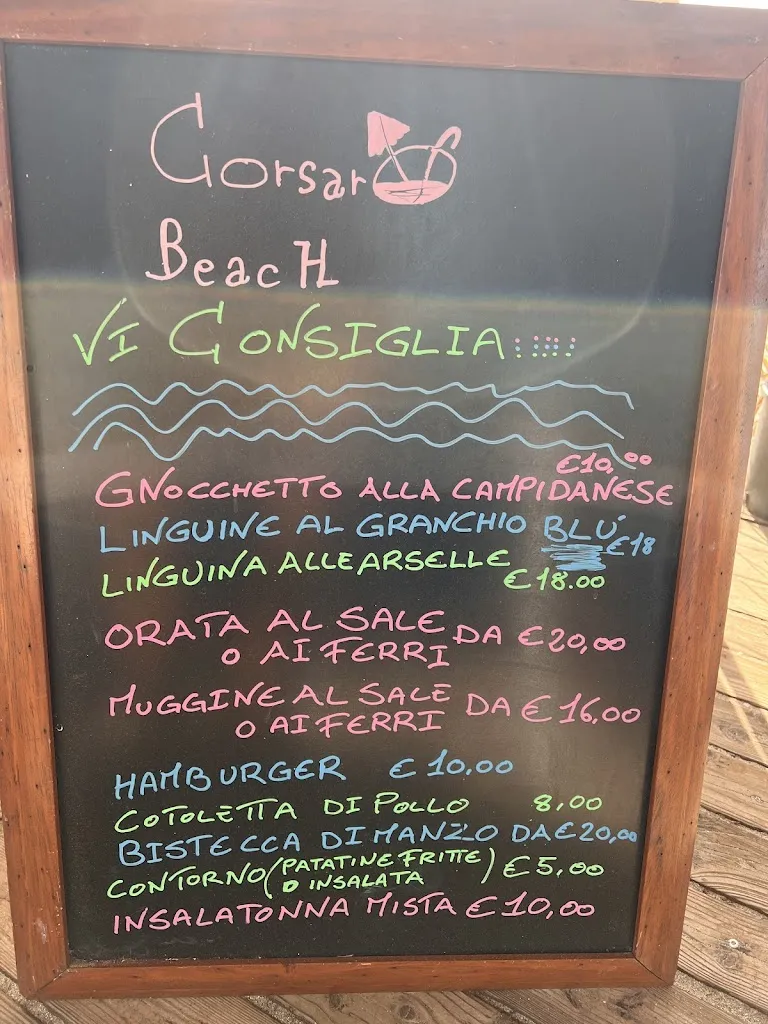 Corsaro
Beach
VI CONSIGLIA
€10,00
GNOCCHETTO ALLA CAMPIDANESE
LINGUINE AL GRANCHIO BLU €18
LINGUINA ALLE ARSELLE
€18.00
ORATA AL SALE DA €20,00
O AI FERRI
MUGGINE AL SALE DA €16,00
O AI FERRI
HAMBURGER €10,00
COTOLETTA DI POLLO 8,00
BISTECCA DI MANZO DA €20,00
CONTORNO (PATATINE FRITTE) €5,00
O INSALATA
INSALATONNA MISTA €10,00